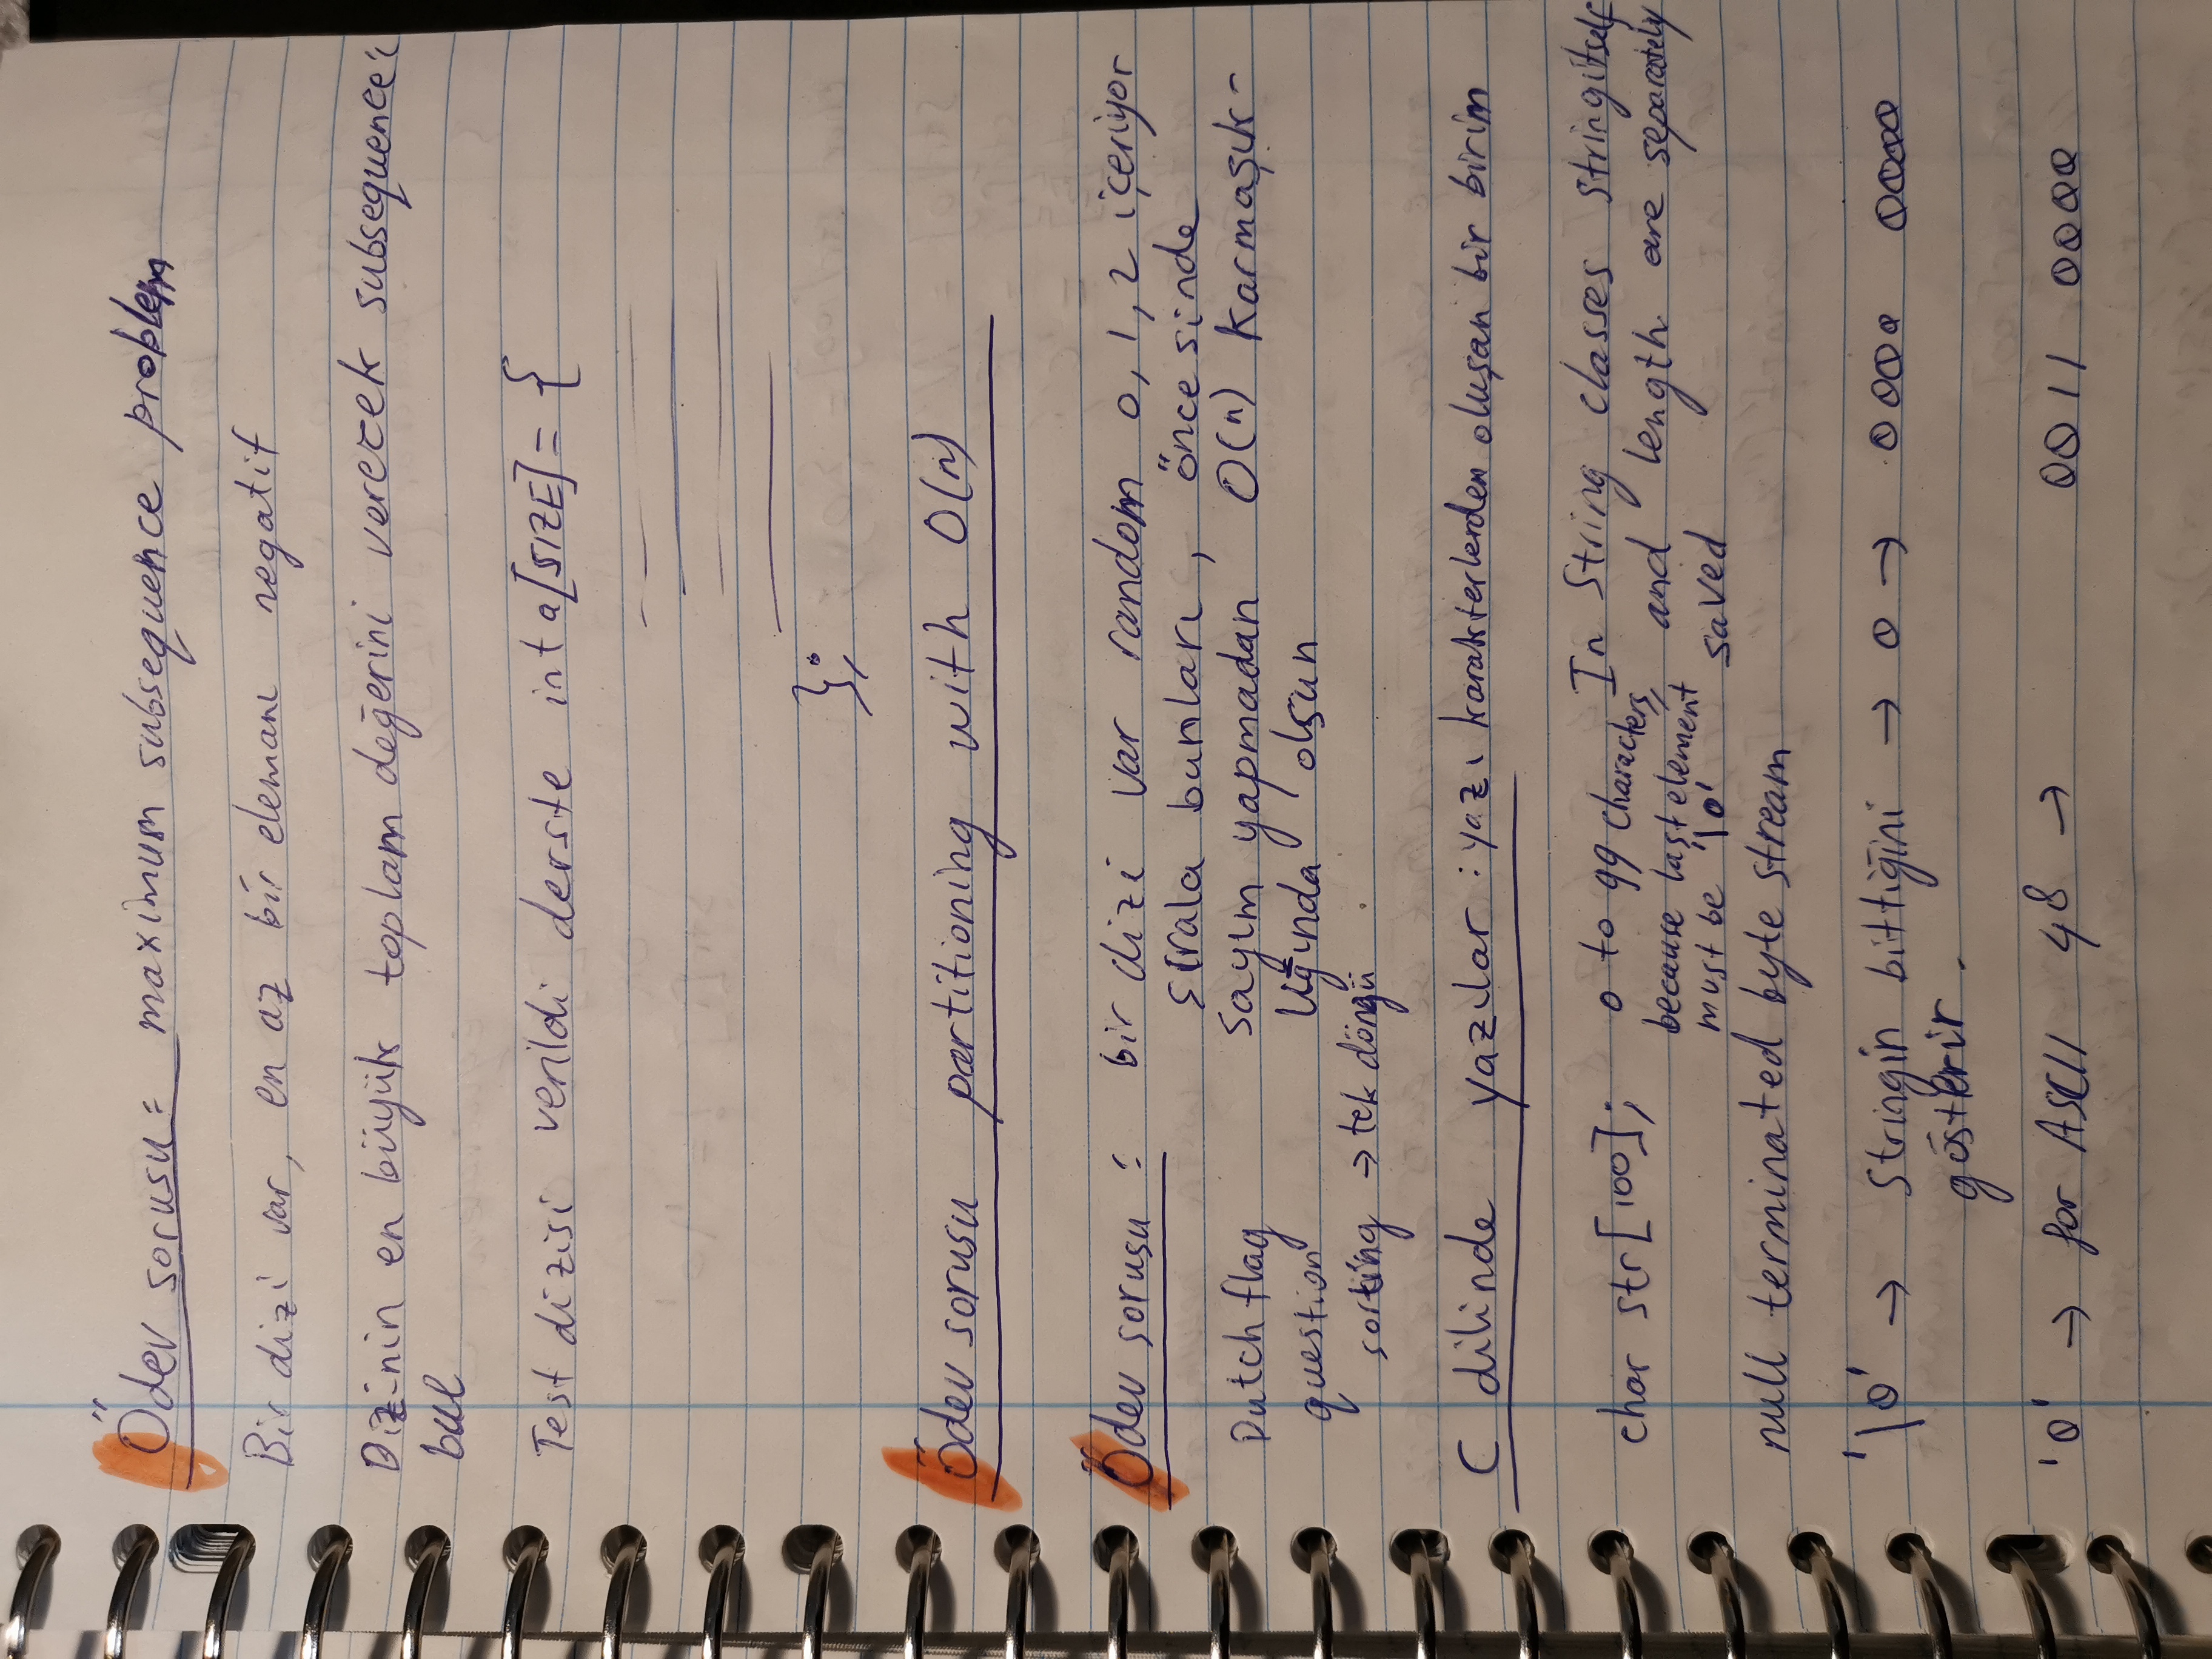 Ödev sorusu: maximum subsequence problem
Bir dizi var, en az bir elemanı negatif
Dizinin en büyük toplam değerini verecek subsequence'i
bul
Test dizisi verildi derste int a[SIZE]= {
};
Ödev sorusu partitioning with O(n)
Ödev sorusu : bir dizi var random 0, 1, 2 içeriyor
sırala bunları, öncesinde
Dutch flag sayım yapmadan O(n) karmaşık-
question lığında olsun
sorting → tek döngü
C dilinde yazılar : yazı karakterlerden oluşan bir birim
char str[100]; 0 to 99 characters, In String classes string itself
because last element and length are separately
must be '\0' saved
null terminated byte stream
'\0' → Stringin bittiğini → 0 → 0000 0000
gösterir.
'0' → for ASCII 48 → 0011 0000